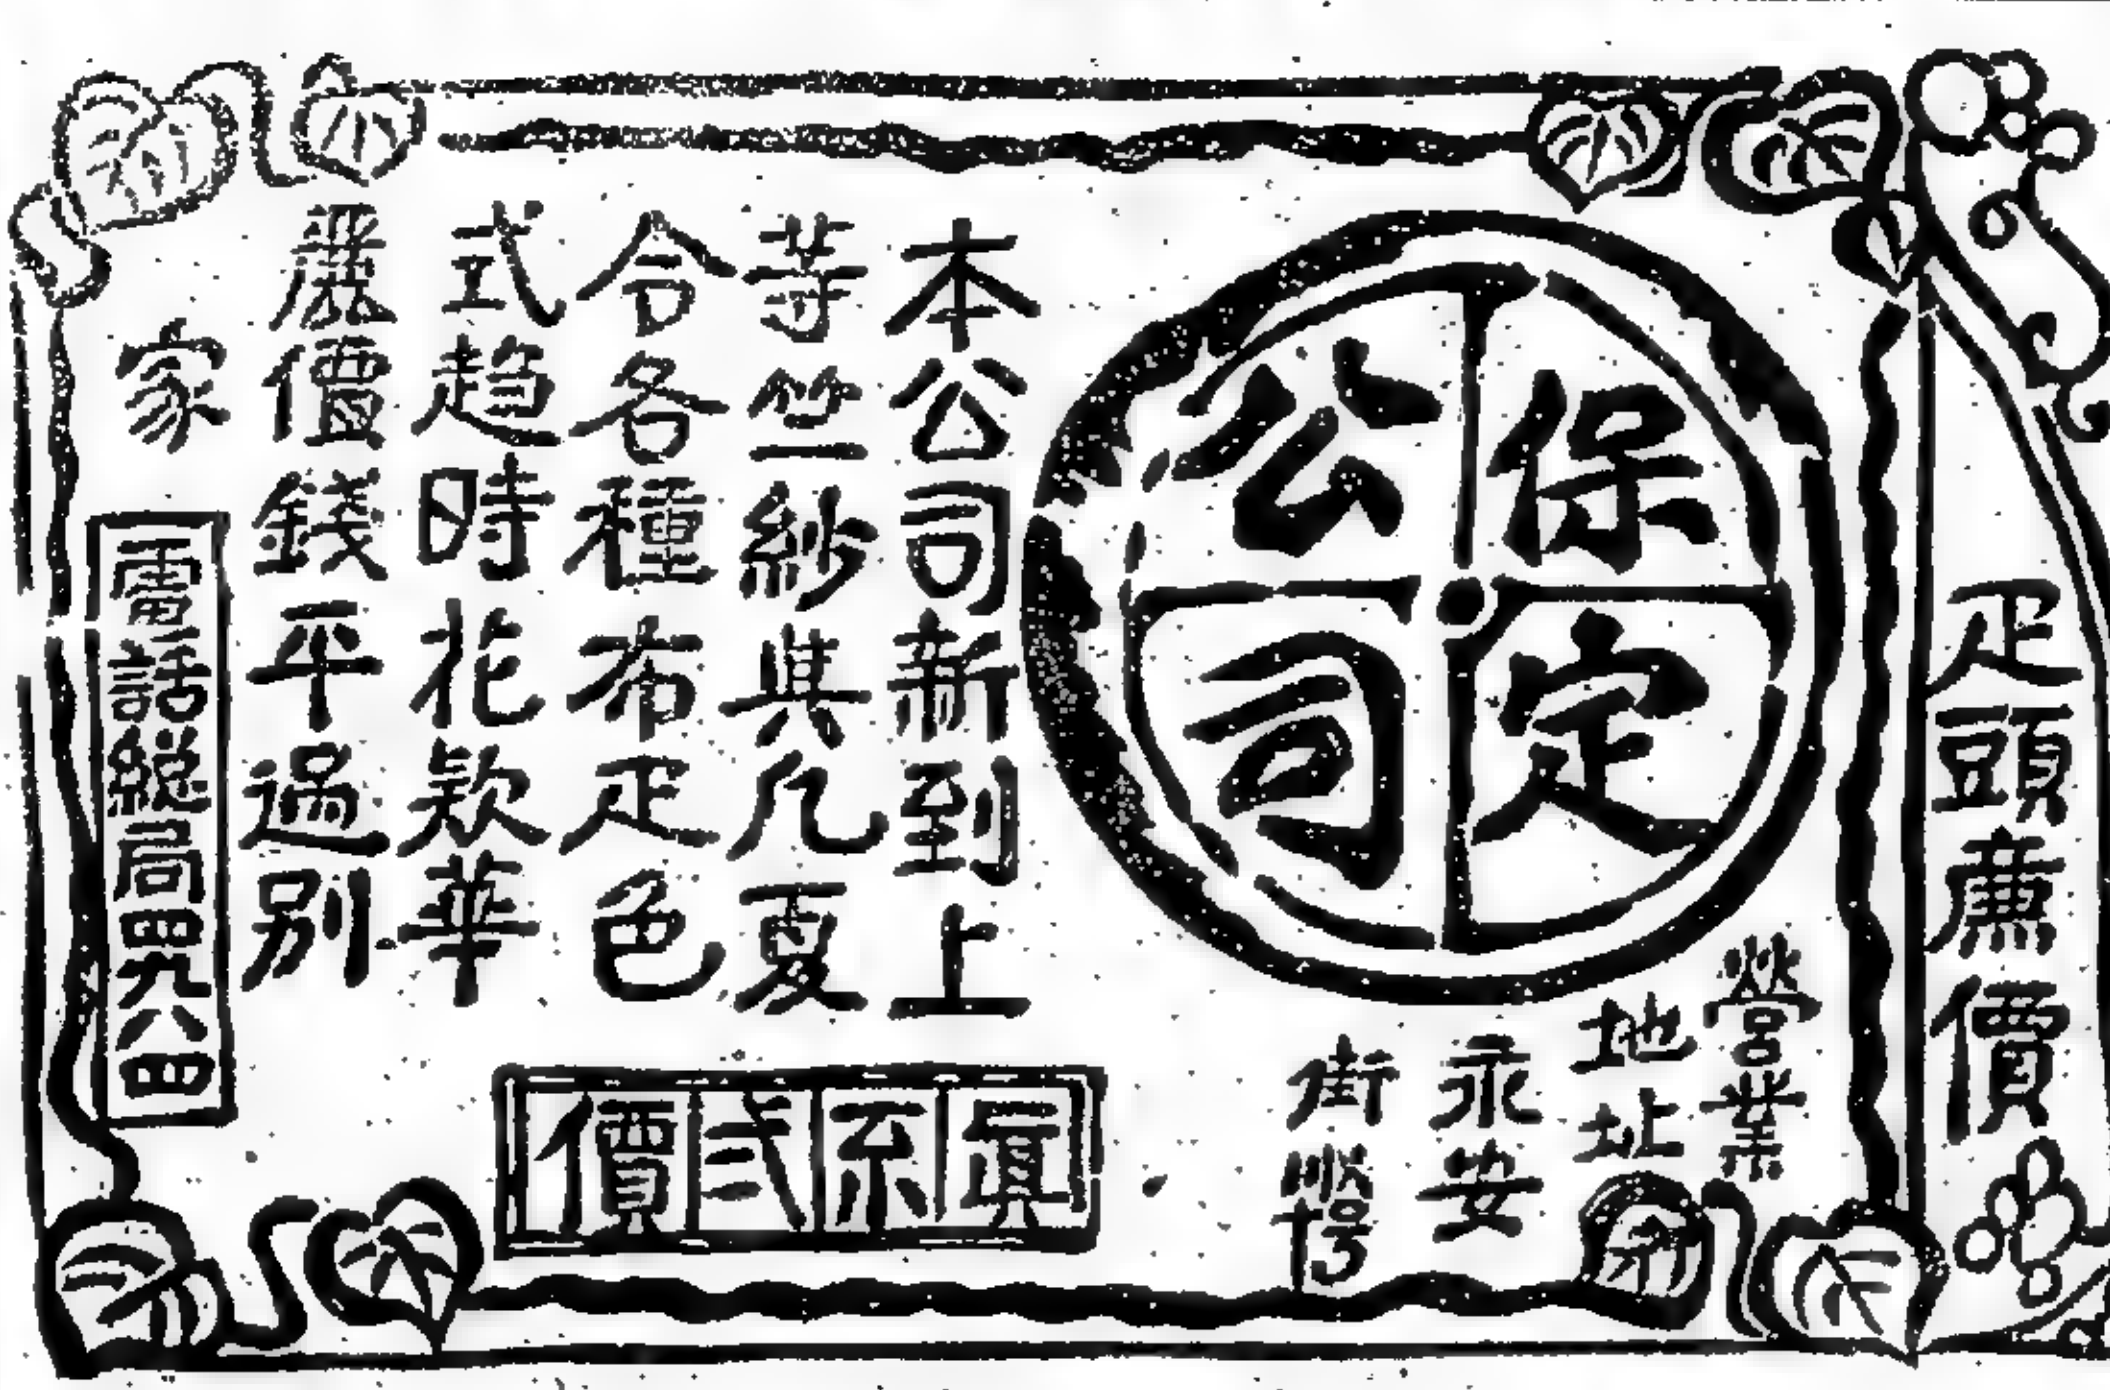 疋頭廉價
保定
公司
營業
地址
永安
街
本公司新到上
等竺紗其凡夏
令各種布疋色
式趋時花欵華
麗價錢平過別
家
電話總局四九八四
眞不弍價